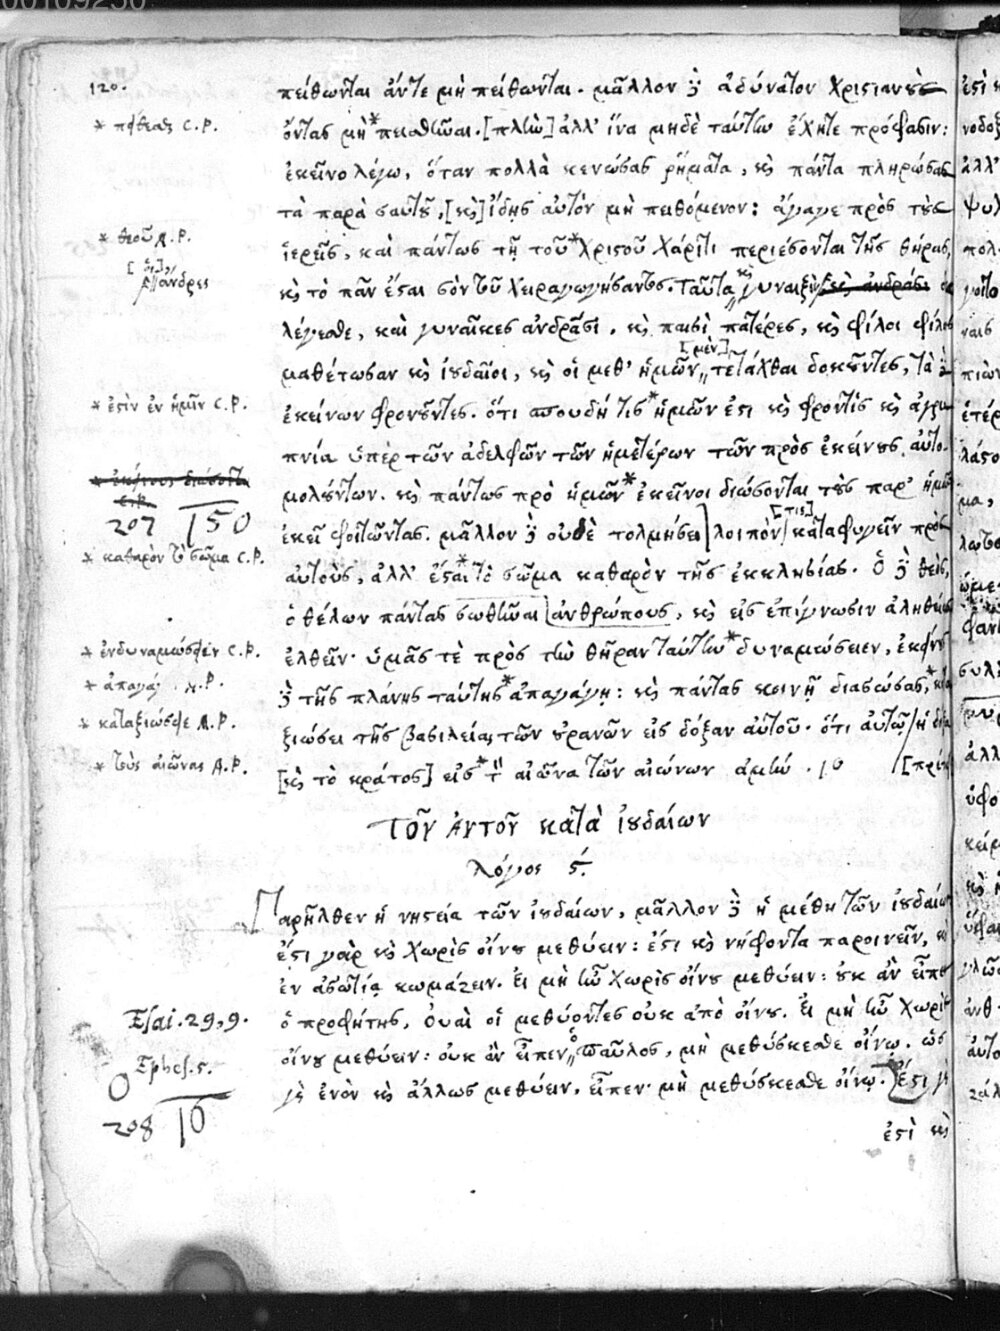 00109250
120.
πείθωνται ἄντε μὴ πείθωνται. μᾶλλον δὲ ἀδύνατον Χριστιανοὺς
ὄντας μὴ * πεισθῶσαι. [πλὴν] ἀλλ' ἵνα μηδὲ ταύτην ἔχητε πρόφασιν:
ἐκεῖνο λέγω, ὅταν πολλὰ κενώσας ῥήματα, καὶ πάντα πληρώσας
τὰ παρὰ σαυτοῦ, [καὶ] ἴδης αὐτὸν μὴ πειθόμενον: ἄγαγε πρὸς τοὺς
ἱερεῖς, καὶ πάντως τῇ τοῦ * Χριστοῦ χάριτι περιέσονται τῆς θήρας,
καὶ τὸ πᾶν ἔσται σὸν τοῦ χειραγωγήσαντος. Ταῦτα καὶ γυναιξὶν
λέγεσθε, καὶ γυναῖκες ἀνδράσι, καὶ παισὶ πατέρες, καὶ φίλοι φίλοις
μαθέτωσαν καὶ ἰουδαῖοι, καὶ οἱ μεθ' ἡμῶν [μὲν] τετάχθαι δοκοῦντες, τὰ δὲ
ἐκείνων φρονοῦντες. ὅτι σπουδή τις * ἡμῶν ἐστι καὶ φροντὶς καὶ ἀγρυ
πνία ὑπὲρ τῶν ἀδελφῶν τῶν ἡμετέρων τῶν πρὸς ἐκείνους αὐτο-
μολούντων. καὶ πάντως πρὸ ἡμῶν * ἐκεῖνοι διώσονται τοὺς παρ' ἡμῶν
ἐκεῖ φοιτῶντας. μᾶλλον δὲ οὐδὲ τολμήσει λοιπὸν [τις] καταφυγεῖν πρὸς
αὐτοὺς, ἀλλ' ἔσται * τὸ σῶμα καθαρὸν τῆς ἐκκλησίας. Ὁ δὲ θεὸς,
ὁ θέλων πάντας σωθῆναι ἀνθρώπους, καὶ εἰς ἐπίγνωσιν ἀληθείας
ἐλθεῖν· ὑμᾶς τὲ πρὸς τὴν θήραν ταύτην * δυναμώσειεν, ἐκείνους
δὲ τῆς πλάνης ταύτης * ἀπαγάγῃ: καὶ πάντας κοινῇ διασώσας, * κατα
ξιώσει τῆς βασιλείας τῶν οὐρανῶν εἰς δόξαν αὐτοῦ. ὅτι αὐτῷ ἡ δόξα
[καὶ τὸ κράτος] εἰς * τὸν αἰῶνα τῶν αἰώνων ἀμήν.
Τοῦ Αὐτοῦ κατὰ ἰουδαίων
Λόγος ς.
Παρῆλθεν ἡ νηστεία τῶν ἰουδαίων, μᾶλλον δὲ ἡ μέθη τῶν ἰουδαίων
ἔστι γὰρ καὶ χωρὶς οἴνου μεθύειν: ἔστι καὶ νήφοντα παροινεῖν, καὶ
ἐν ἀσωτίᾳ κωμάζειν. Εἰ μὴ ἦν χωρὶς οἴνου μεθύειν: οὐκ ἂν εἶπεν
ὁ προφήτης, Οὐαὶ οἱ μεθύοντες οὐκ ἀπὸ οἴνου. Εἰ μὴ ἦν χωρὶς
οἴνου μεθύειν: οὐκ ἂν εἶπεν ὁ παῦλος, μὴ μεθύσκεσθε οἴνῳ. ὡς
γὰρ ἐνὸν καὶ ἄλλως μεθύειν, εἶπεν· μὴ μεθύσκεσθε οἴνῳ. Ἔστι γὰρ
ἔστι καὶ
* θεοῦ A.R.
ἄνδρες
* ἐστὶν ἐν ἡμῖν C.R.
207 150
* καθαρὸν τὸ σῶμα C.R.
* ἐνδυναμώσειεν C.R.
* καταξιώσειε A.R.
* τοὺς αἰῶνας A.R.
Esai. 29,9.
Ephes. 5.
208